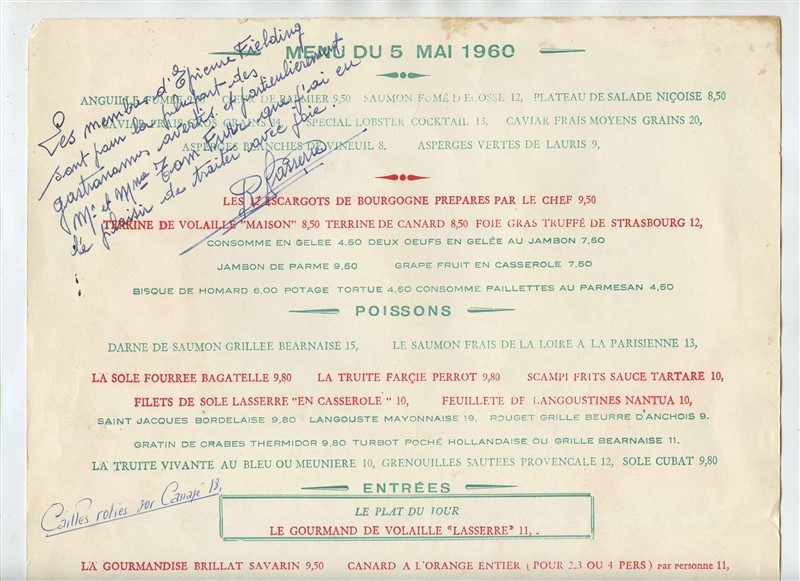 MENU DU 5 MAI 1960
Les membres d'Epicure Fielding
sont pour la plupart des
gastronomes avertis et particulièrement
Mr et Mme Tom que j'ai eu
le plaisir de traiter avec joie.
R Lasserre
ANGUILLE FUMEE PALMIER 9,50 SAUMON FUMÉ D'ECOSSE 12, PLATEAU DE SALADE NIÇOISE 8,50
CAVIAR FRAIS GROS GRAINS SPECIAL LOBSTER COCKTAIL 13, CAVIAR FRAIS MOYENS GRAINS 20,
ASPERGES BLANCHES DE VINEUIL 8, ASPERGES VERTES DE LAURIS 9,
LES 12 ESCARGOTS DE BOURGOGNE PREPARES PAR LE CHEF 9,50
TERRINE DE VOLAILLE "MAISON" 8,50 TERRINE DE CANARD 8,50 FOIE GRAS TRUFFÉ DE STRASBOURG 12,
CONSOMME EN GELEE 4,50 DEUX OEUFS EN GELÉE AU JAMBON 7,50
JAMBON DE PARME 9,50 GRAPE FRUIT EN CASSEROLE 7,50
BISQUE DE HOMARD 6,00 POTAGE TORTUE 4,50 CONSOMME PAILLETTES AU PARMESAN 4,50
POISSONS
DARNE DE SAUMON GRILLEE BEARNAISE 15, LE SAUMON FRAIS DE LA LOIRE A LA PARISIENNE 13,
LA SOLE FOURREE BAGATELLE 9,80 LA TRUITE FARÇIE PERROT 9,80 SCAMPI FRITS SAUCE TARTARE 10,
FILETS DE SOLE LASSERRE "EN CASSEROLE" 10, FEUILLETE DE LANGOUSTINES NANTUA 10,
SAINT JACQUES BORDELAISE 9,80 LANGOUSTE MAYONNAISE 19, ROUGET GRILLE BEURRE D'ANCHOIS 9.
GRATIN DE CRABES THERMIDOR 9,80 TURBOT POCHÉ HOLLANDAISE OU GRILLE BEARNAISE 11.
LA TRUITE VIVANTE AU BLEU OU MEUNIERE 10, GRENOUILLES SAUTEES PROVENCALE 12, SOLE CUBAT 9,80
ENTRÉES
Cailles roties sur Canapé 18,
LE PLAT DU JOUR
LE GOURMAND DE VOLAILLE "LASSERRE" 11,.
LA GOURMANDISE BRILLAT SAVARIN 9,50 CANARD A L'ORANGE ENTIER (POUR 2.3 OU 4 PERS) par personne 11,